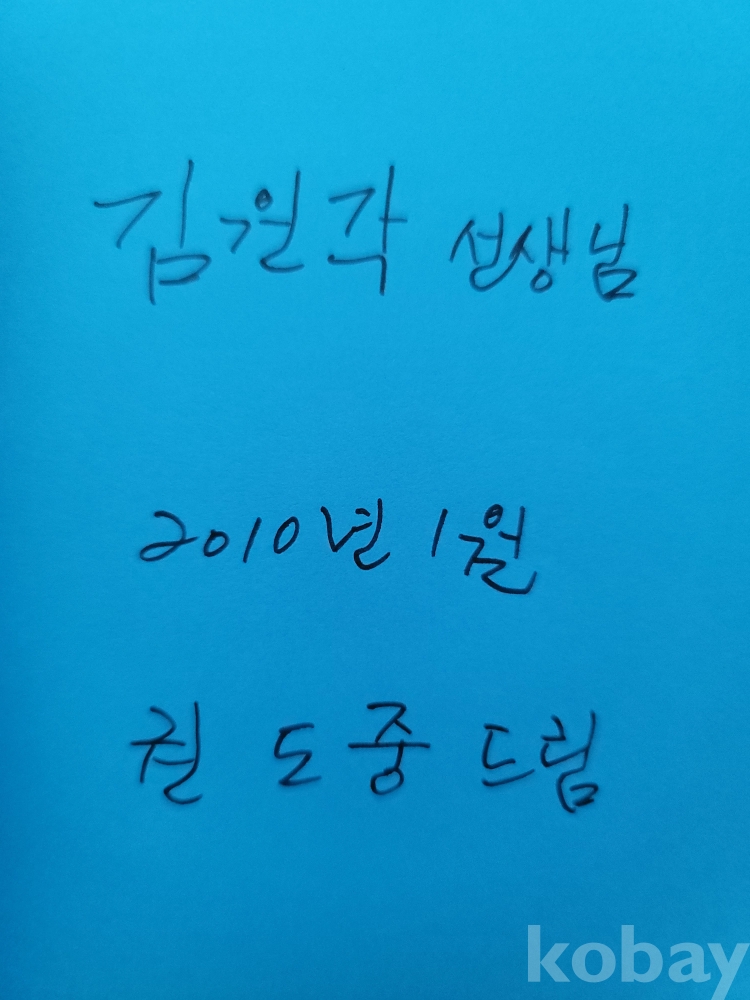 김원각 선생님
2010년 1월
권 도 중 드림
kobay